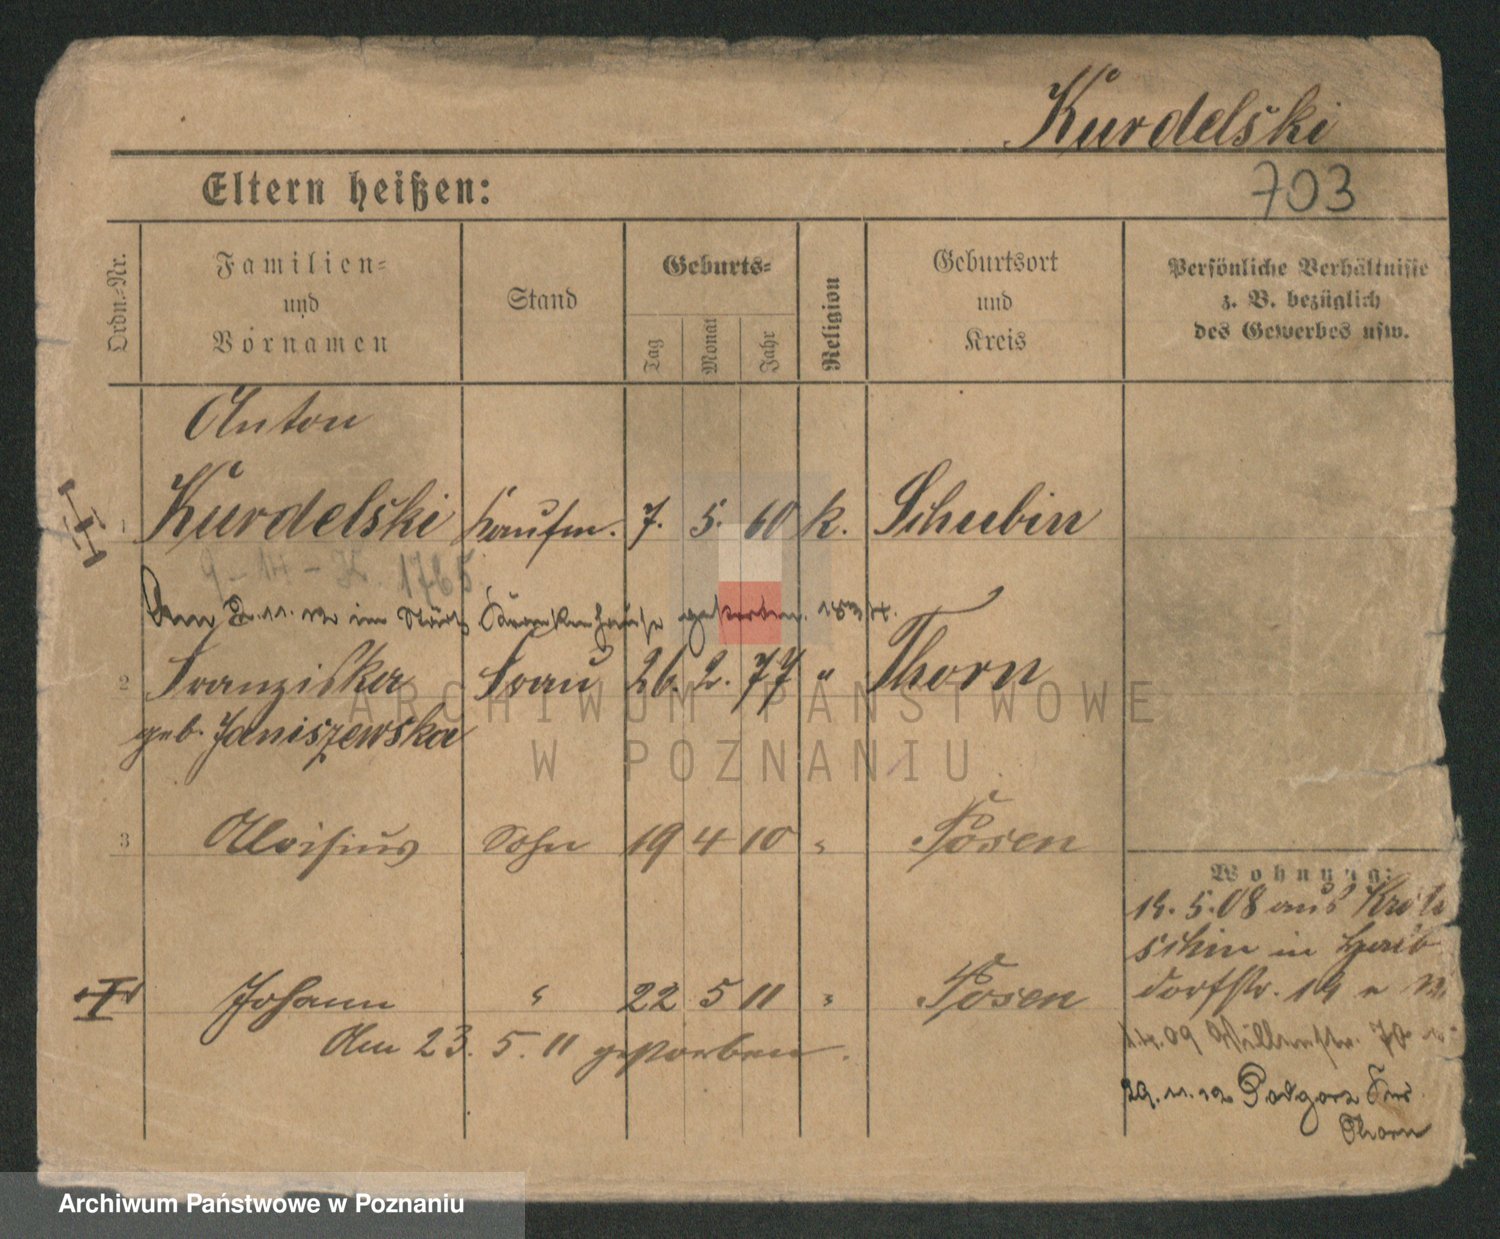 Kurdelski
Eltern heißen:
703
Ordn.-Nr.
Familien-
und
Vornamen
Stand
Geburts-
Tag
Monat
Jahr
Religion
Geburtsort
und
Kreis
Persönliche Verhältnisse
z. B. bezüglich
des Gewerbes usw.
Anton
1 Kurdelski Kaufm. 7. 5. 60 k. Schubin
9 - 14 - 1765
Am 2. 11. 12 im Städt. Krankenhause gestorben.
2 Franziska Frau 26. 2. 77 " Thorn
geb. Janiszewska
3 Aloisius Sohn 19 4 10 "
Posen
Johann " 22 5 11 " Posen
Am 23. 5. 11 gestorben.
Wohnung:
5. 08 aus Kroto
schin in
dorfstr. 19
1.4.09
29. 11. 12 Podgorz Krs
Thorn
ARCHIWUM PAŃSTWOWE
W POZNANIU
Archiwum Państwowe w Poznaniu